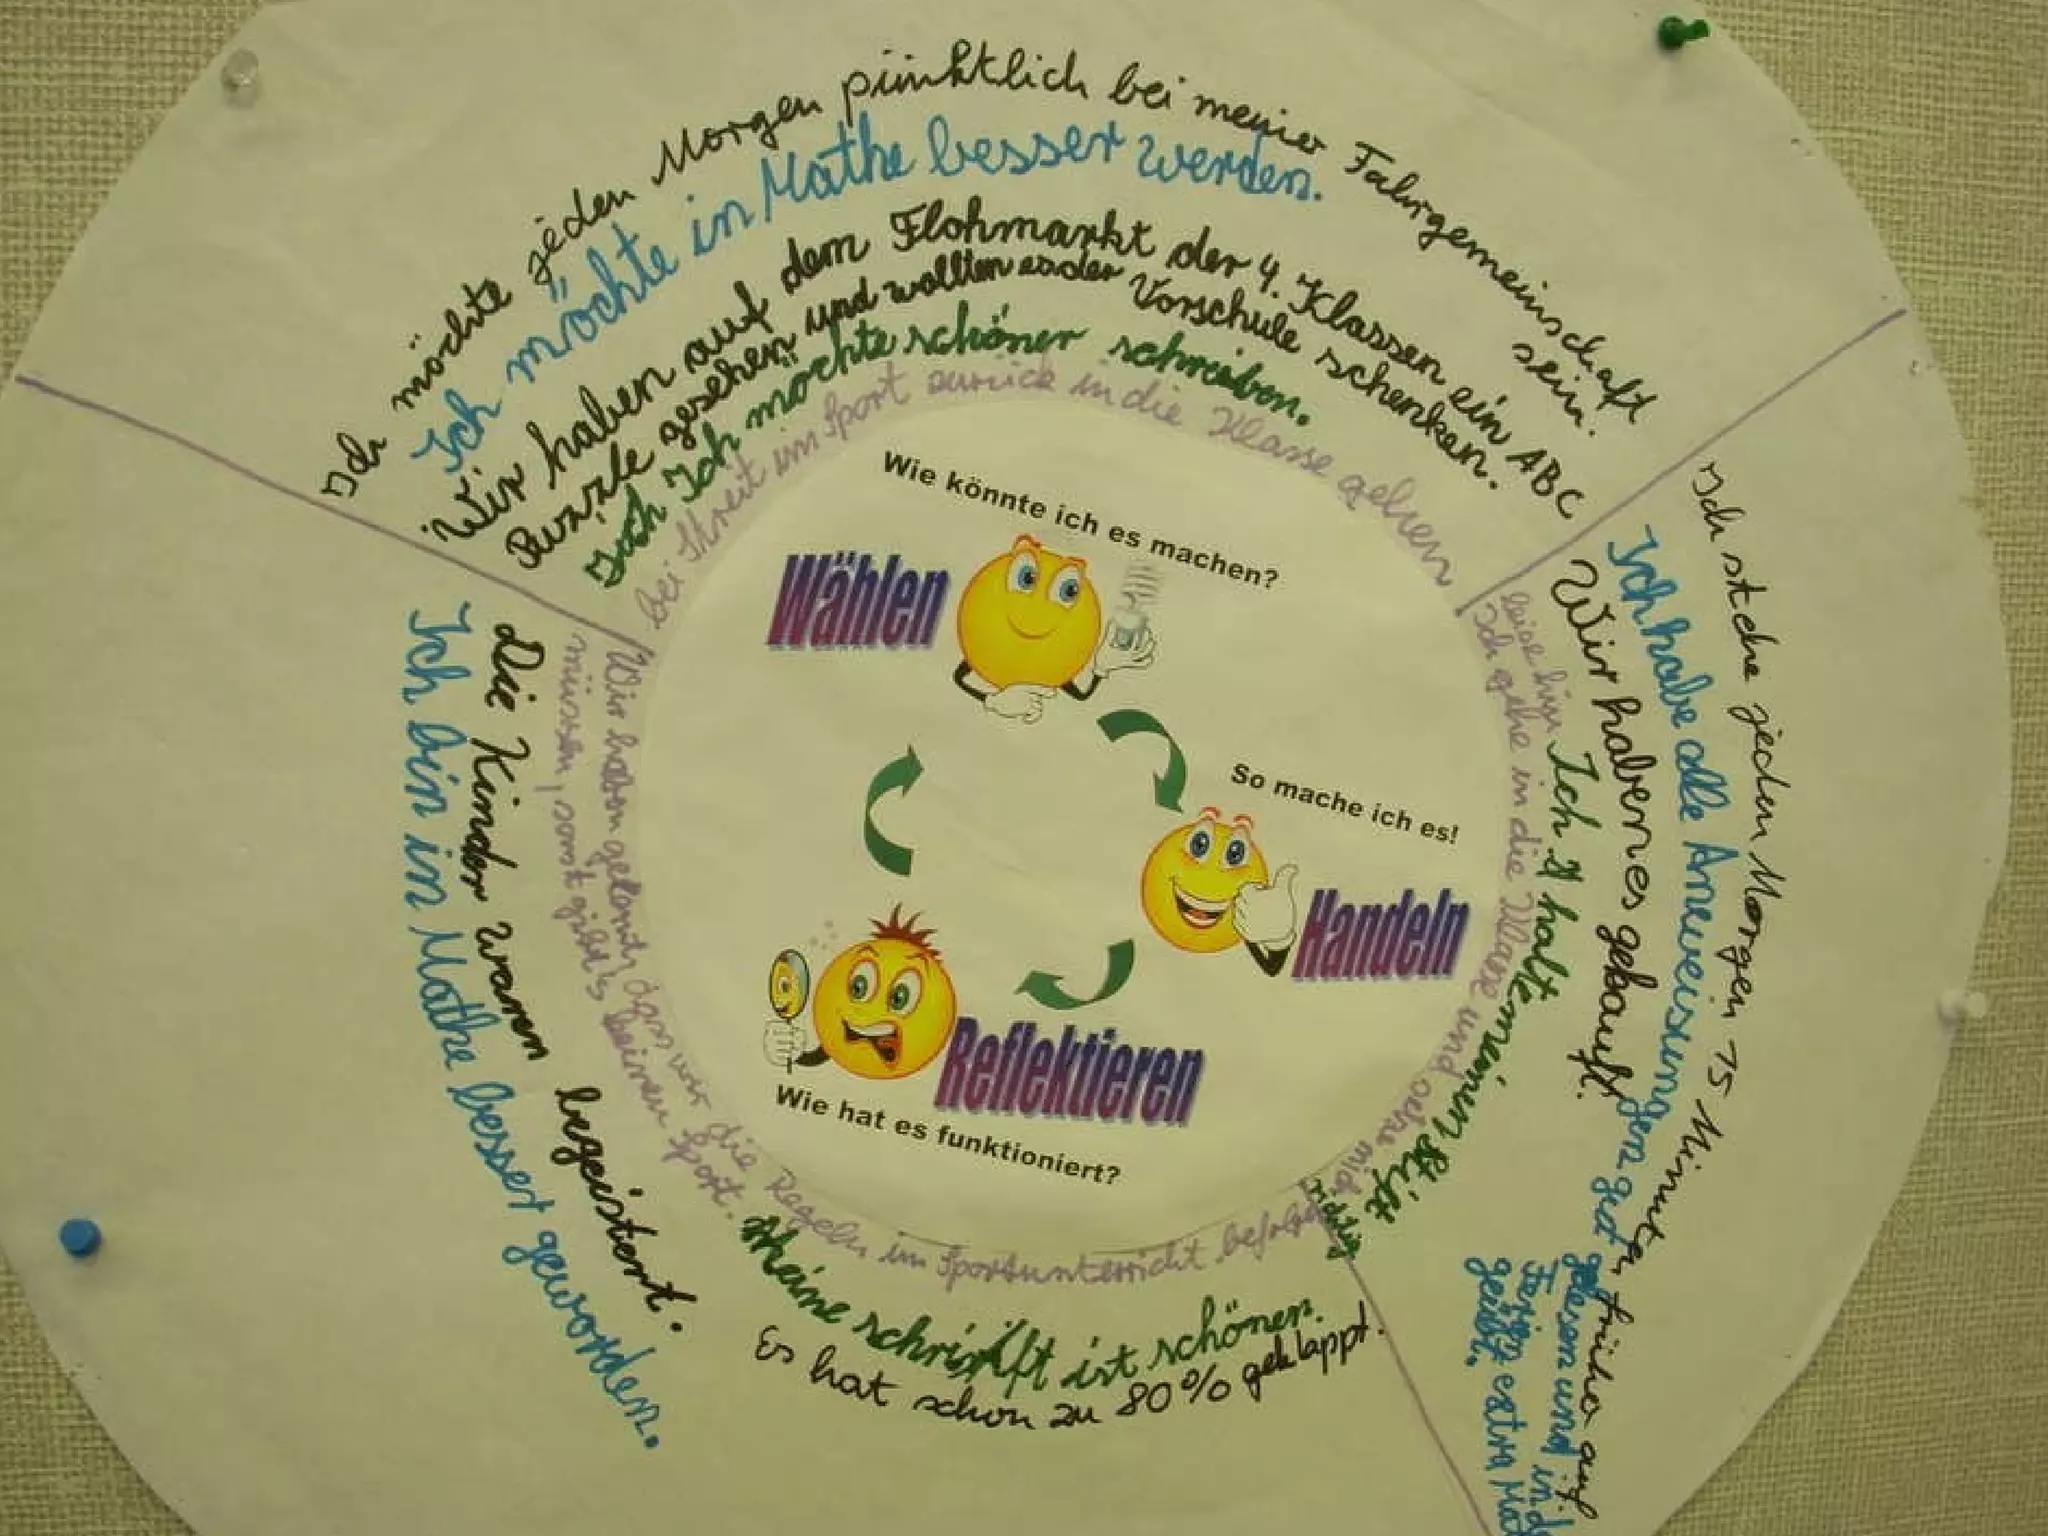 Ich möchte jeden Morgen pünktlich bei meiner Fahrgemeinschaft
sein.
Ich möchte in Mathe besser werden.
Wir haben auf dem Flohmarkt der 4. Klassen ein ABC
Puzzle gesehen und wollten es der Vorschule schenken.
Ich möchte schöner schreiben.
bei Streit im Sport zurück in die Klasse gehen
Wie könnte ich es machen?
Wählen
So mache ich es!
Handeln
Reflektieren
Wie hat es funktioniert?
Ich stehe jeden Morgen 15 Minuten früher auf
Ich habe alle Anweisungen gut
gelesen und in d
Ferien extra Mat
geübt.
Wir haben es gekauft.
Ich halte meinen Stift
richtig
Ich gehe in die Klasse und
Wir haben gelernt, dass wir die Regeln im Sportunterricht befolgen
müssen, sonst gibt's keinen Sport.
Die Kinder waren begeistert.
Ich bin in Mathe besser geworden.
Meine schrift ist schöner.
Es hat schon zu 80% geklappt.